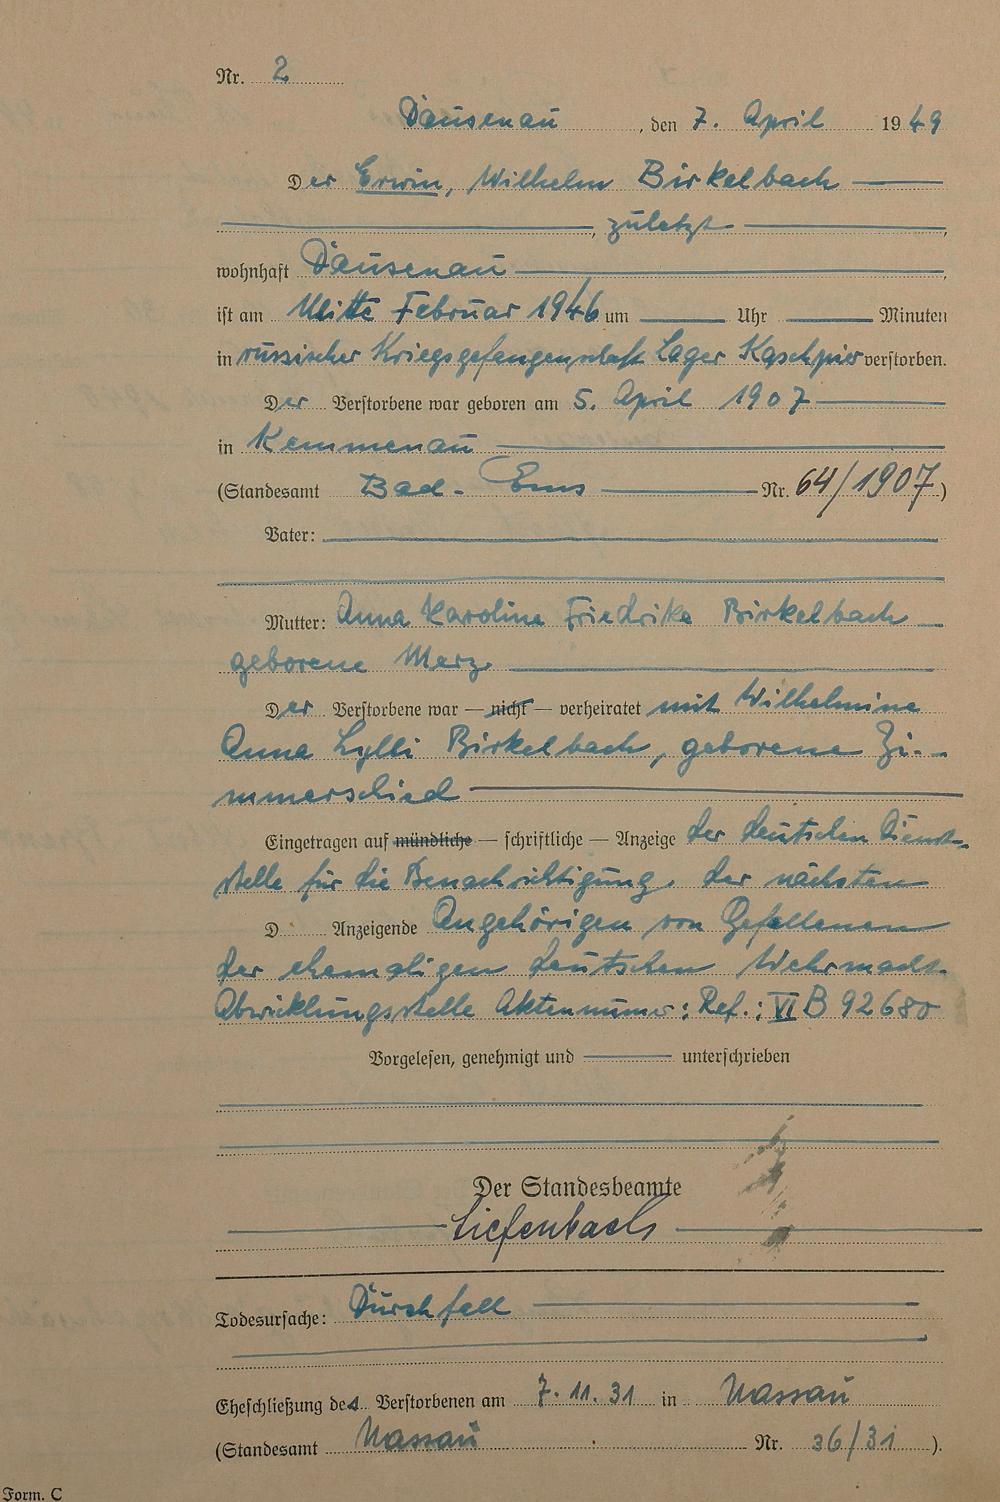 Nr. 2
Dausenau, den 7. April 1949
Der Erwin, Wilhelm Birkelbach
, zuletzt ,
wohnhaft Dausenau ,
ist am Mitte Februar 1946 um Uhr Minuten
in russischer Kriegsgefangenschaft Lager Kaschpir verstorben.
Der Verstorbene war geboren am 5. April 1907
in Kemmenau
(Standesamt Bad-Ems Nr. 64/1907)
Vater:
Mutter: Anna Karoline Friedrike Birkelbach
geborene Merz
Der Verstorbene war — nicht — verheiratet mit Wilhelmine
Anna Lylli Birkelbach, geborene Zi-
mmerschied
Eingetragen auf mündliche — schriftliche — Anzeige der deutschen Dienst-
stelle für die Benachrichtigung der nächsten
D Anzeigende Angehörigen von Gefallenen
der ehemaligen deutschen Wehrmacht
Abwicklungsstelle Aktennummer: Ref.: VI B 92680
Vorgelesen, genehmigt und unterschrieben
Der Standesbeamte
Tiefenbach
Todesursache: Durchfall
Eheschließung des Verstorbenen am 7.11.31 in Nassau
(Standesamt Nassau Nr. 36/31 ).
Form. C